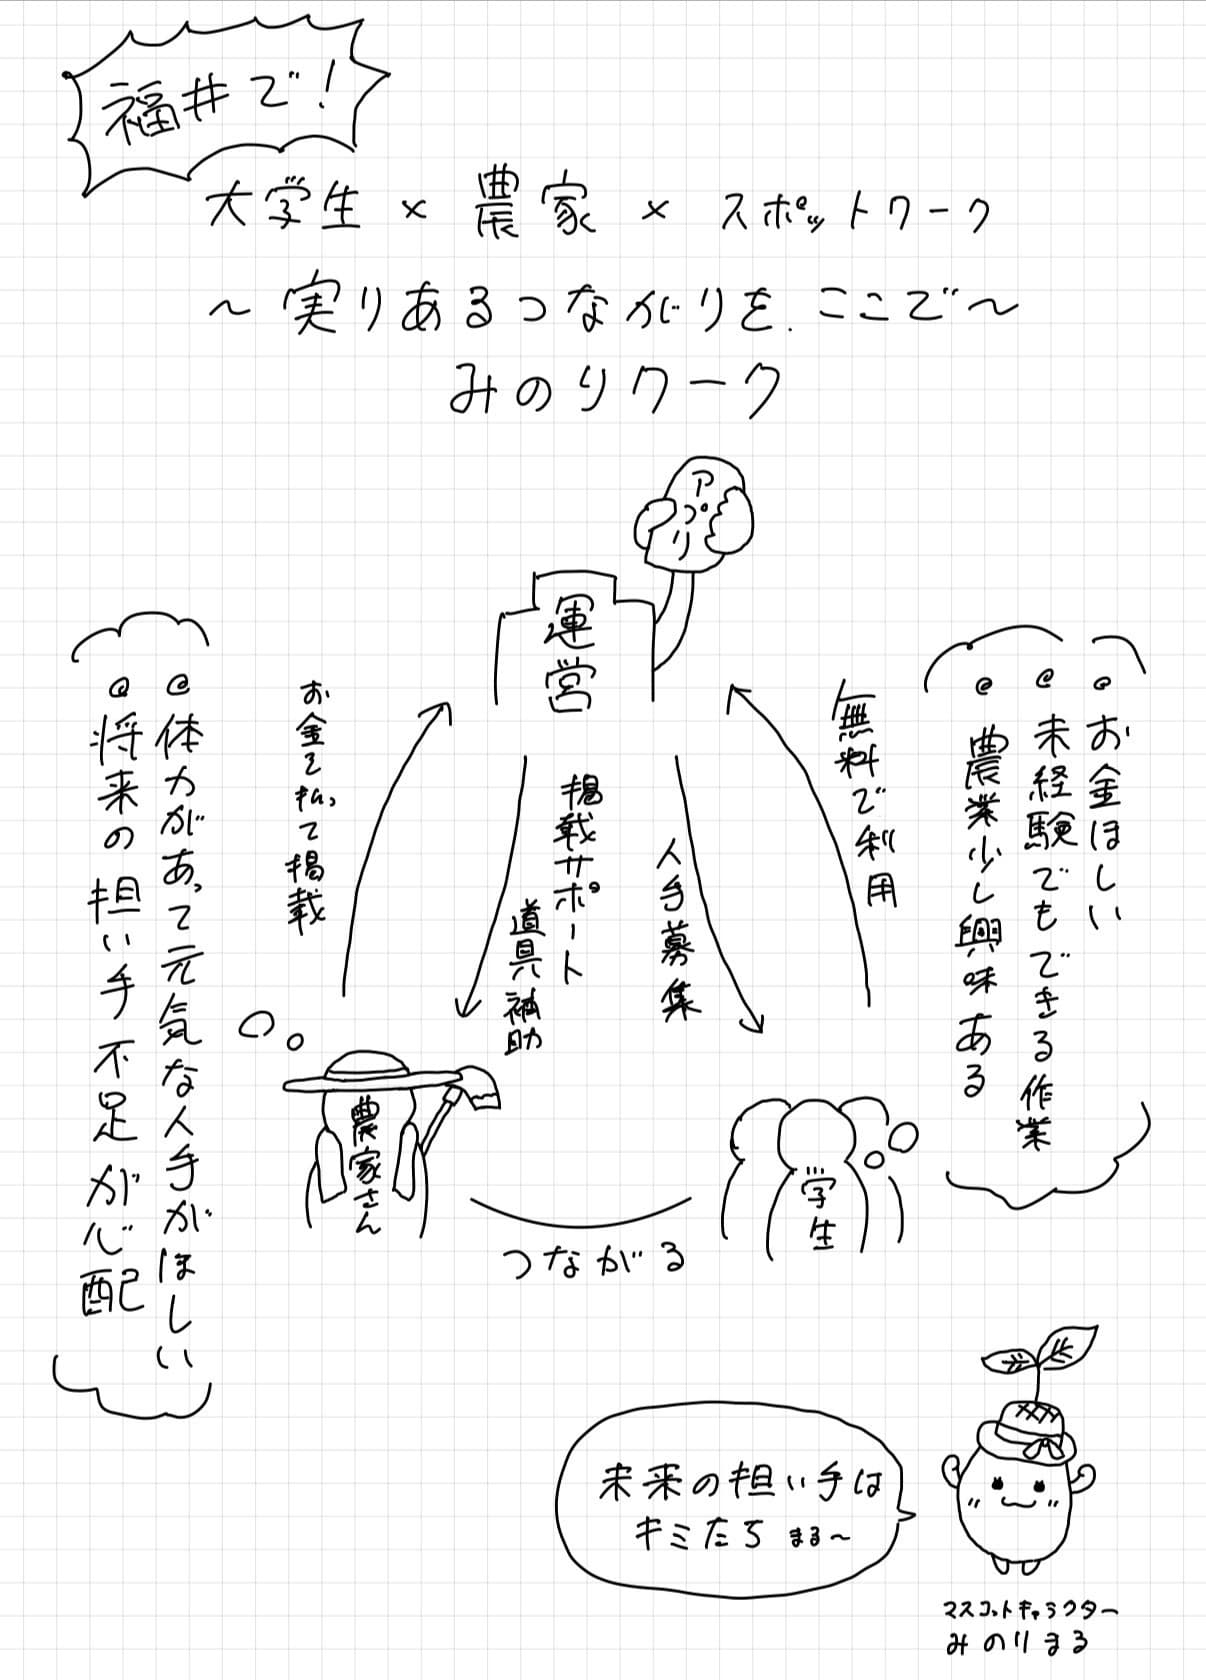 福井で!
大学生 × 農家 × スポットワーク
～実りあるつながりを、ここで～
みのりワーク
アプリ
運営
お金を払って掲載
掲載サポート
道具補助
人手募集
無料で利用
◎お金ほしい
◎未経験でもできる作業
◎農業少し興味ある
◎体力があって元気な人手がほしい
◎将来の担い手不足が心配
農家さん
学生
つながる
未来の担い手は
キミたち まる～
マスコットキャラクター
みのりまる